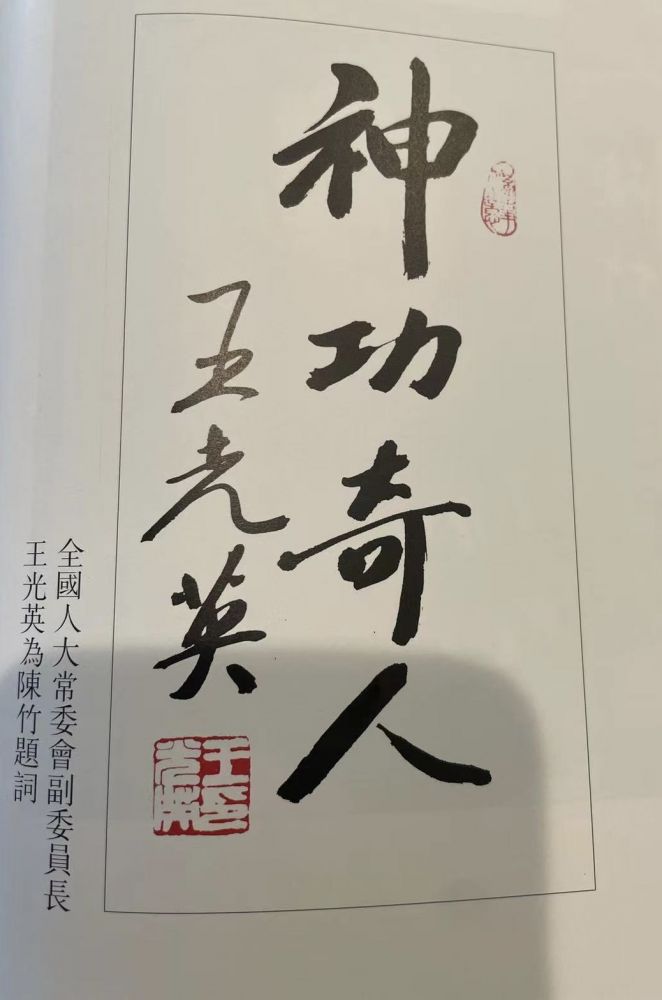 神功奇人
王光英
王光英印
全國人大常委會副委員長
王光英為陳竹題詞